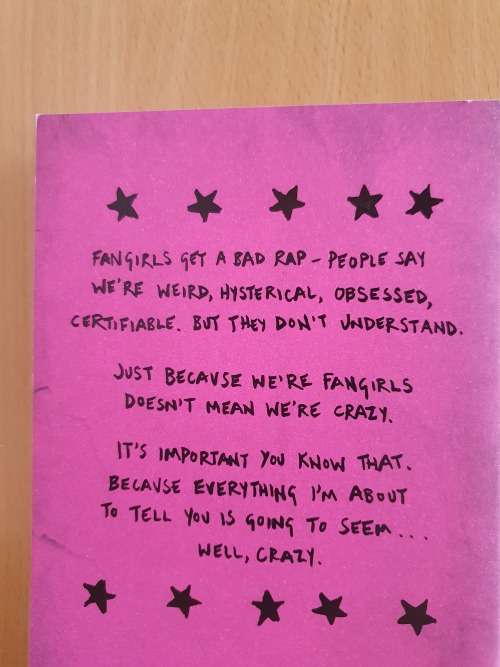 FANGIRLS GET A BAD RAP – PEOPLE SAY
WE'RE WEIRD, HYSTERICAL, OBSESSED,
CERTIFIABLE. BUT THEY DON'T UNDERSTAND.
JUST BECAUSE WE'RE FANGIRLS
DOESN'T MEAN WE'RE CRAZY.
IT'S IMPORTANT YOU KNOW THAT.
BECAUSE EVERYTHING I'M ABOUT
TO TELL YOU IS GOING TO SEEM...
WELL, CRAZY.